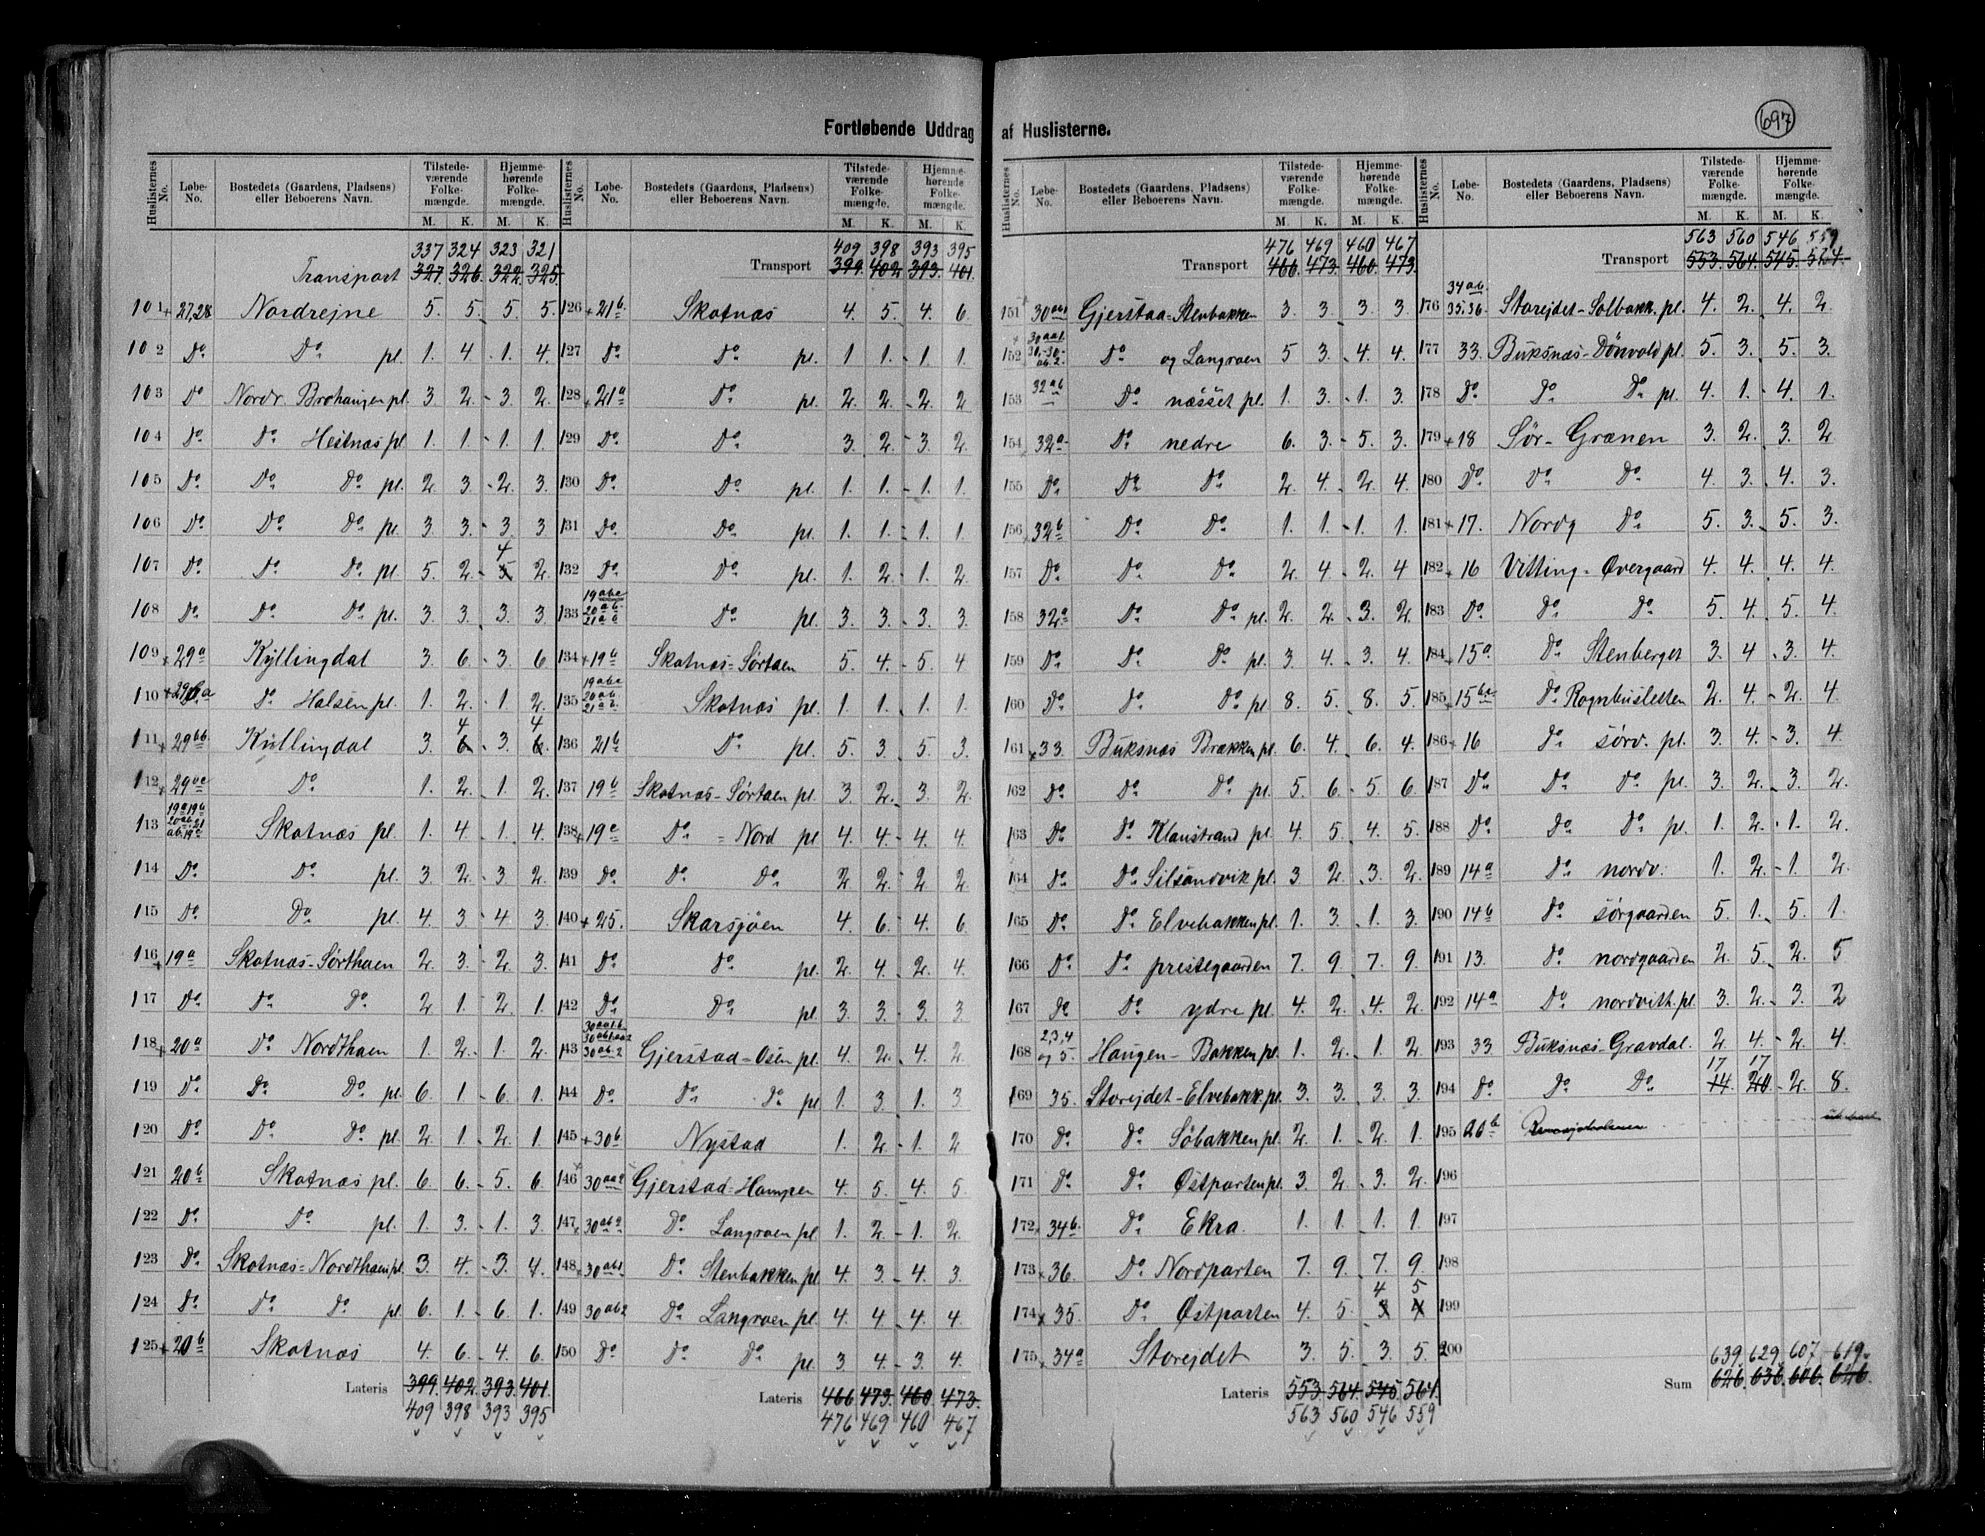 Fortløbende Uddrag af Huslisterne.
697
Huslisternes No. | Løbe-No. | Bostedets (Gaardens, Pladsens) eller Beboerens Navn. | Tilstedeværende Folkemængde. M. K. | Hjemmehørende Folkemængde. M. K.
Transport 337 324 323 321
327. 326. 322. 325.
101 + 27,28 Nordrejne 5. 5. 5. 5.
102 Do Do pl. 1. 4. 1. 4.
103 Do Nordr. Brohaugen pl. 3. 2. 3. 2.
104 Do. Do Hestnæs pl. 1. 1. 1. 1.
105 Do. Do. Do. pl. 2. 3. 2. 3.
106 Do. Do. Do. pl. 3. 3. 3. 3.
107 Do. Do. Do. pl. 5. 2. 5 4 2.
108 Do. Do. Do. pl. 3. 3. 3. 3.
109 + 29a Kyllingdal 3. 6. 3. 6
110 + 29ba Do. Halsen pl. 1. 2. 1. 2.
111 + 29bb Kyllingdal 3. 6 4 3. 6. 4
112 + 29 Do. 1. 2. 1. 2.
113 19a 19b 20ab. 21 ab. 19c Skotnæs pl. 1. 4. 1. 4.
114 Do. Do. pl. 3. 2. 3. 2.
115 Do. Do. pl. 4. 3. 4. 3.
116 + 19a Skotnæs-Sørthaen 2. 3. 2. 3.
117 Do. Do. Do. 2. 1. 2. 1.
118 + 20a Do. Nordthaen 1. 2. 1. 2.
119 Do. Do. Do. pl. 6. 1. 6. 1.
120 Do. Do. Do. pl. 2. 1. 2. 1.
121 20b Skotnæs pl. 6. 6. 5. 6.
122 Do. Do. pl. 1. 3. 1. 3.
123 Do. Skotnæs-Nordthaen pl. 3. 4. 3. 4.
124 Do. Do. Do. pl. 6. 1. 6. 1.
125 + 20b Skotnæs 4. 6. 4. 6.
Lateris 399. 402. 393. 401.
409 398 393 395
Huslisternes No. | Løbe-No. | Bostedets (Gaardens, Pladsens) eller Beboerens Navn. | Tilstedeværende Folkemængde. M. K. | Hjemmehørende Folkemængde. M. K.
409 398 393 395
Transport 399. 402. 393. 401.
126 + 21b. Skotnæs 4. 5. 4. 6.
127 Do. Do. pl. 1. 1. 1. 1.
128 + 21a Do. pl. 2. 2. 2. 2
129 Do. Do. 3. 2. 3. 2.
130 Do. Do. pl. 1. 1. 1. 1.
131 Do. Do. pl. 1. 1. 1. 1.
132 Do. Do. pl. 1. 2. 1. 2.
133 19abc 20ab 21 Do. pl. 3. 3. 3. 3
134 + 19b Skotnæs-Sørtaen 5. 4. 5. 4
135 19abc 20ab 21 Skotnæs pl. 1. 1. 1. 1.
136 21b Do. pl. 5. 3. 5. 3.
137 19b Skotnæs-Sørtaen pl. 3. 2. 3. 2.
138 + 19c Do. - Nord pl 4. 4. 4. 4
139 Do. Do. Do. 2. 2. 2. 2.
140 + 25. Skarsjøen 4. 6. 4. 6
141 Do. Do. pl. 2. 4. 2. 4.
142 Do. Do. pl. 3. 3. 3. 3.
143 30ab.2 Gjerstad-Osen pl. 4. 2. 4. 2.
144 Do. Do. Do. pl. 1. 3. 1. 3
145 + 30b Nystad 1. 2. 1. 2
146 30aa2 Gjerstad-Hompen 4. 5. 4. 5.
147 30ab2 Do. Langroen pl. 1. 2. 1. 2.
148 30ab1 Do. Stenbakken pl. 4. 3. 4. 3.
149 30ab2 Do. Langroen pl. 4. 4. 4. 4.
150 Do. Do. Do. pl. 3 4. 3. 4.
Lateris 466. 473. 460. 473.
476 469 460 467
Huslisternes No. | Løbe-No. | Bostedets (Gaardens, Pladsens) eller Beboerens Navn. | Tilstedeværende Folkemængde. M. K. | Hjemmehørende Folkemængde. M. K.
476 469 460 467
Transport 466. 473. 460. 473.
151 30ab1 Gjerstaa-Stenbakken 3. 3. 3. 3.
152 30aa1. ab.2. Do. og Langroen 5 3. 4. 4.
153 32ab Do. næsset pl. 1. 3. 1. 3.
154 32a. Do. nedre 6. 3. 5. 3.
155 Do. Do. Do. 2. 4. 2. 4.
156 32b Do. Do. 1. 1. 1. 1.
157 Do. Do. Do. 2. 4. 2. 4
158 32a Do. Do. pl. 2. 2. 3. 2.
159 Do. Do. Do. pl. 3. 4. 3. 4.
160 Do. Do. Do. pl 8. 5. 8. 5.
161 33. Buksnæs Brækken pl. 6. 4. 6. 4.
162 Do. Do. Do. pl. 5. 6. 5. 6.
163 Do. Do. Klanstrand pl. 4. 5. 4. 5.
164 Do. Do. Silsandvik pl. 3. 2. 3. 2.
165 Do. Do. Elvebakken pl. 1. 3. 1. 3.
166 Do. Do. prestegaarden 7. 9. 7. 9.
167 Do. Do. ydre pl. 4. 2. 4. 2.
168 2,3,4 og 5. Haugen-Bakken pl. 1. 2. 1. 2.
169 35. Storejdet-Elvebakk. pl. 3. 3. 3. 3.
170 Do. Do. Søbakken pl. 2. 1. 2. 1.
171 Do. Do. Østparten pl. 3 2. 3. 2.
172 34b. Do. Ekra. 1. 1. 1. 1.
173 36. Do. Nordparten 7. 9. 7. 9.
174 35. Do. Østparten 4. 5. 3 4 4 5
175 34a Storejdet 3. 5. 3. 5.
Lateris 553. 564. 545. 564.
563 560 546 559
Huslisternes No. | Løbe-No. | Bostedets (Gaardens, Pladsens) eller Beboerens Navn. | Tilstedeværende Folkemængde. M. K. | Hjemmehørende Folkemængde. M. K.
563 560 546 559
Transport 553. 564. 545. 564.
176 34ab. 35.36. Storejdet-Solbakk. pl. 4. 2. 4. 2.
177 33. Buksnæs-Dønvold pl. 5. 3. 5. 3.
178 Do. Do. Do. pl. 4. 1. 4. 1.
179 + 18 Sør-Grænen 3. 2. 3. 2
180 Do. Do. Do. 4. 3. 4. 3.
181 + 17. Nordy Do. 5. 3. 5. 3.
182 + 16 Vitting-Øvergaard 4. 4. 4. 4.
183 Do. Do. Do. 5. 4. 5. 4.
184 15a Do. Stenberget 3. 4. 3. 4.
185 15ba Do. Rognhusletten 2. 4. 2. 4.
186 + 16 Do. sørv. pl. 3. 4. 3. 4.
187 Do. Do. Do. pl. 3. 2. 3. 2.
188 Do. Do. Do. pl. 1. 2. 1. 2.
189 14a Do. nordv. 1. 2. 1. 2.
190 14b Do. sørgaarden 5. 1. 5. 1.
191 13. Do. nordgaarden 2. 5. 2. 5
192 14a Do. nordvitt. pl. 3. 2. 3. 2
193 33. Buksnæs-Gravdal. 2. 4. 2. 4.
194 Do. Do. Do. 14. 17 20 17 2. 8.
195 26b
196
197
198
199
200
639. 629. 607. 619.
Sum 626. 636. 606. 626.